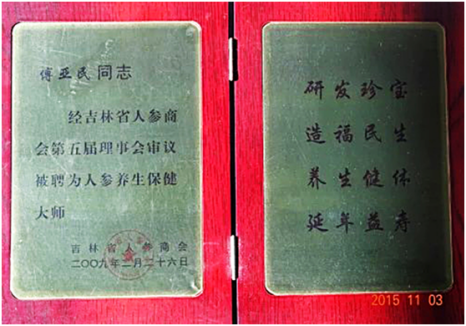 傅亚民同志
经吉林省人参商
会第五届理事会审议
被聘为人参养生保健
大师
吉林省人参商会
二〇〇九年二月二十六日
研发珍宝
造福民生
养生健体
延年益寿
2015 11 03